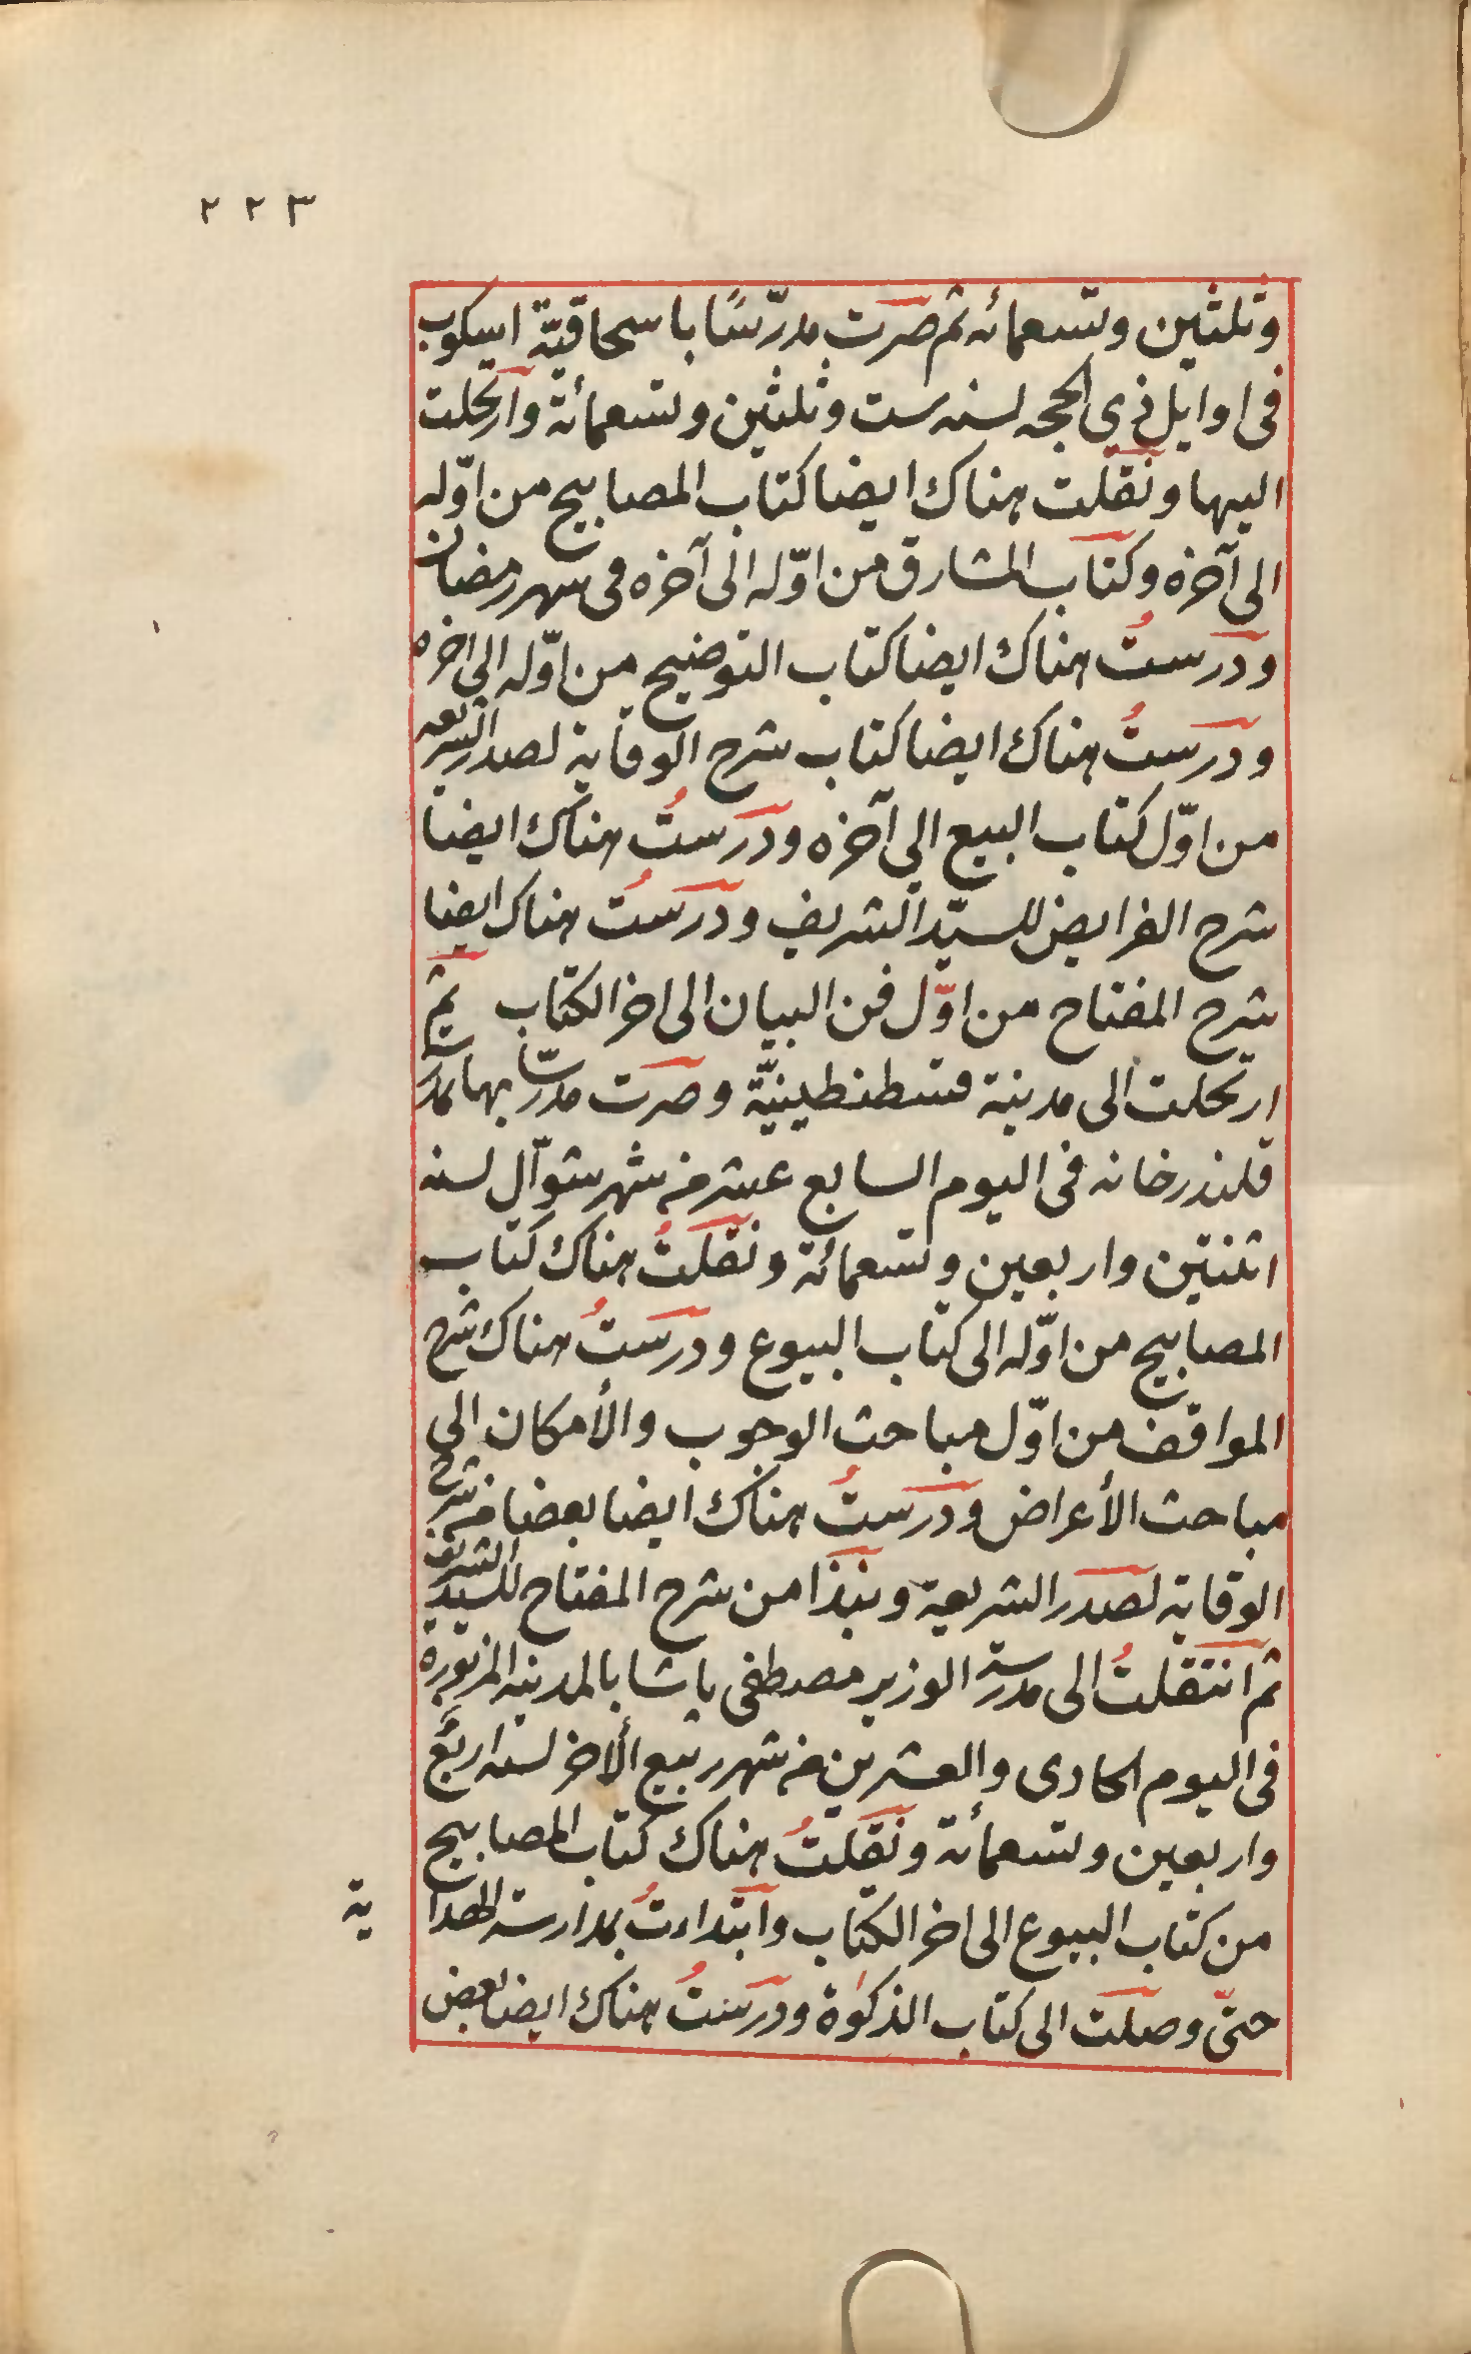 ٢٢٣
وثلثين وتسعمائه ثم صرت مدرّسًا باسحاقيّة اسكوب
فى اوايل ذي الحجه لسنه ست وثلثين وتسعمائة وارتحلت
اليها ونقلت هناك ايضا كتاب المصابيح من اوّله
الى آخره وكتاب المشارق من اوّله الى آخره فى شهر رمضان
ودرستُ هناك ايضا كتاب التوضيح من اوّله الى اخره
ودرستُ هناك ايضا كتاب شرح الوقاية لصدر الشريعه
من اوّل كتاب البيع الى آخره ودرستُ هناك ايضا
شرح الفرايض للسيّد الشريف ودرستُ هناك ايضا
شرح المفتاح من اوّل فن البيان الى اخر الكتاب ثم
ارتحلت الى مدينة قسطنطينيّة وصرت مدرسا بها بمدرسة
قلندرخانه فى اليوم السابع عشر من شهر شوّال لسنه
اثنتين واربعين وتسعمائة ونقلتُ هناك كتاب
المصابيح من اوّله الى كتاب البيوع ودرستُ هناك شرح
المواقف من اوّل مباحث الوجوب والأمكان الى
مباحث الأعراض ودرستُ هناك ايضا بعضا من شرح
الوقاية لصدر الشريعة ونبذا من شرح المفتاح للسيد الشريف
ثم انتقلتُ الى مدرسة الوزير مصطفى پاشا بالمدينه المزبورة
فى اليوم الحادى والعشرين من شهر ربيع الأخر لسنه اربع
واربعين وتسعمأئة ونقلتُ هناك كتاب المصابيح
من كتاب البيوع الى اخر الكتاب وابتداءتُ بمدارسة الهدا
ية
حتى وصلت الى كتاب الذكوة ودرستُ هناك ايضا بعض